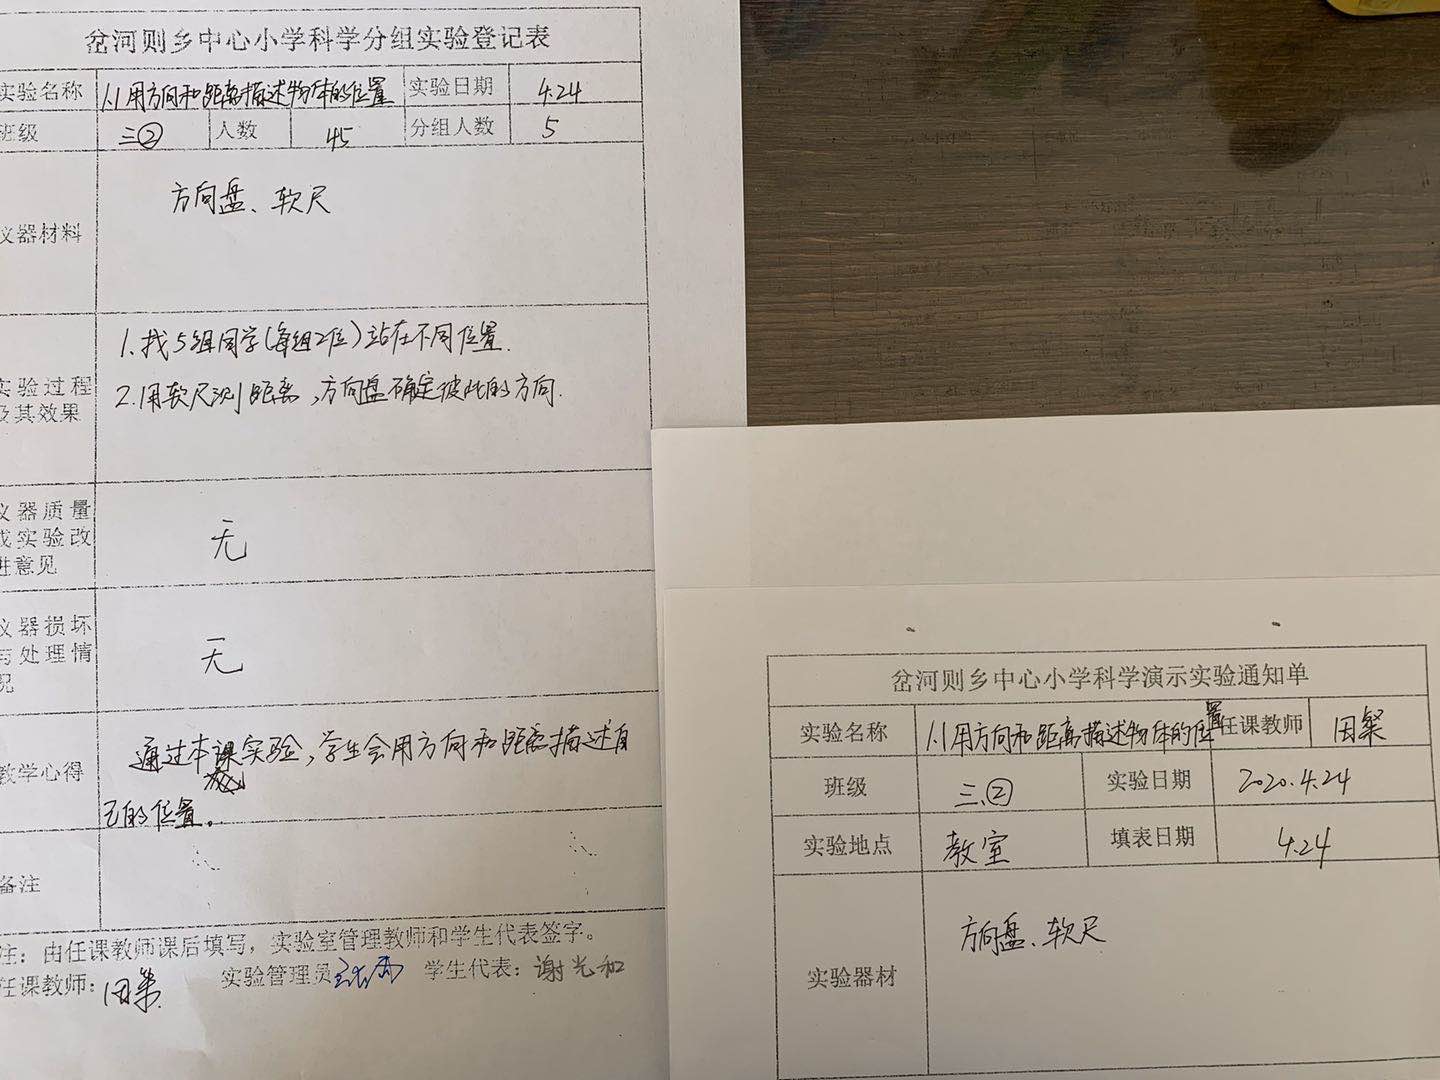 岔河则乡中心小学科学分组实验登记表
实验名称 1.1用方向和距离描述物体的位置 实验日期 4.24
班级 三② 人数 45 分组人数 5
仪器材料 方向盘、软尺
1.找5组同学(每组2位)站在不同位置.
2.用软尺测距离,方向盘确定彼此的方向.
实验过程
及其效果
仪器质量
或实验改
进意见
无
仪器损坏
与处理情
况
无
教学心得
通过本课实验,学生会用方向和距离描述自
己的位置。
备注
注:由任课教师课后填写,实验室管理教师和学生代表签字。
任课教师: 田 实验管理员 学生代表:谢光和
岔河则乡中心小学科学演示实验通知单
实验名称 1.1用方向和距离描述物体的位置 任课教师 田粲
班级 三② 实验日期 2020.4.24
实验地点 教室 填表日期 4.24
实验器材 方向盘、软尺